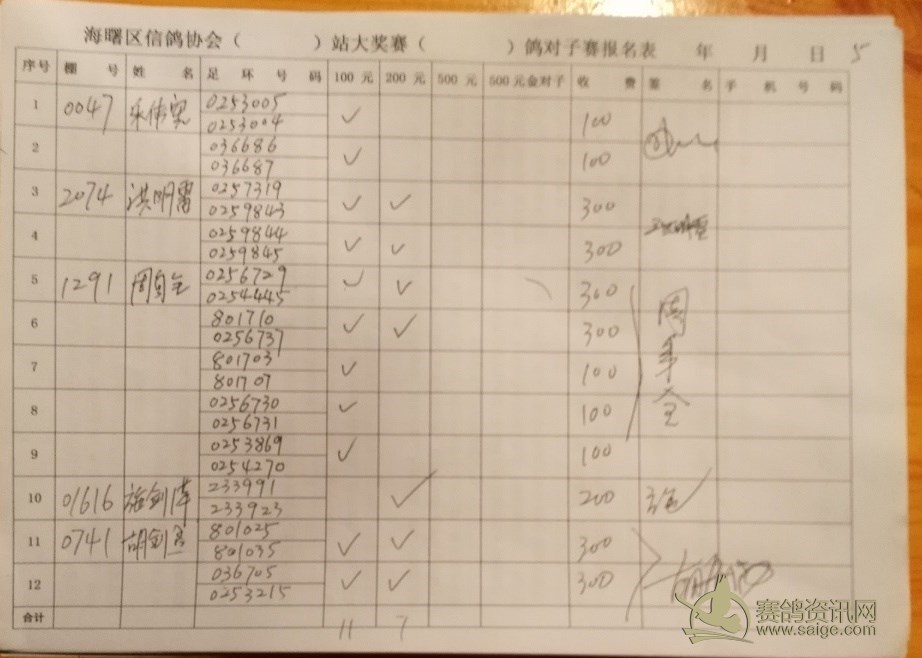 海曙区信鸽协会（ ）站大奖赛（ ）鸽对子赛报名表 年 月 日 5
序号 棚号 姓名 足环号码 100元 200元 500元 500元金对子 收费 签名 手机号码
1 0047 0253005 ✓ 100
0253004
2 036686 ✓ 100
036687
3 2074 洪明雷 0257319 ✓ ✓ 300
0259843
4 0259844 ✓ ✓ 300
0259845
5 1291 0256729 ✓ ✓ 300
0254445
6 801710 ✓ ✓ 300
0256737
7 801703 ✓ 100
801707
8 0256730 ✓ 100
0256731
9 0253869 ✓ 100
0254270
10 01616 233991 ✓ 200
233923
11 0741 801025 ✓ ✓ 300
801035
12 036705 ✓ ✓ 300
0253215
合计 11 7
赛鸽资讯网
www.saige.com